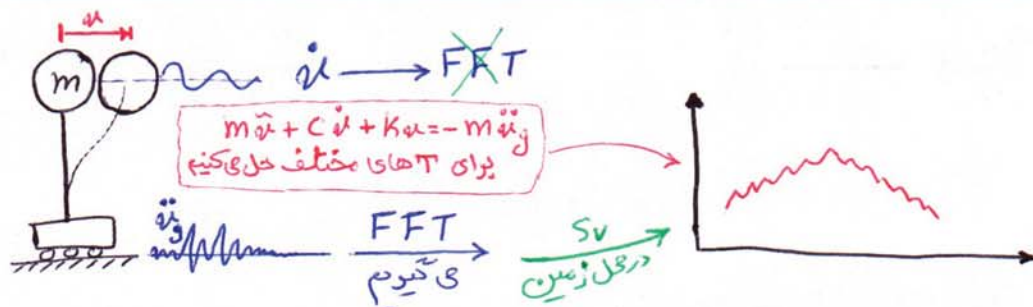 u
m
u̇ → FFT
mü + cu̇ + Ku = -mü_g
برای T های مختلف حل می‌کنیم
ü_g
FFT
می گیریم
Sv
در محل زمین